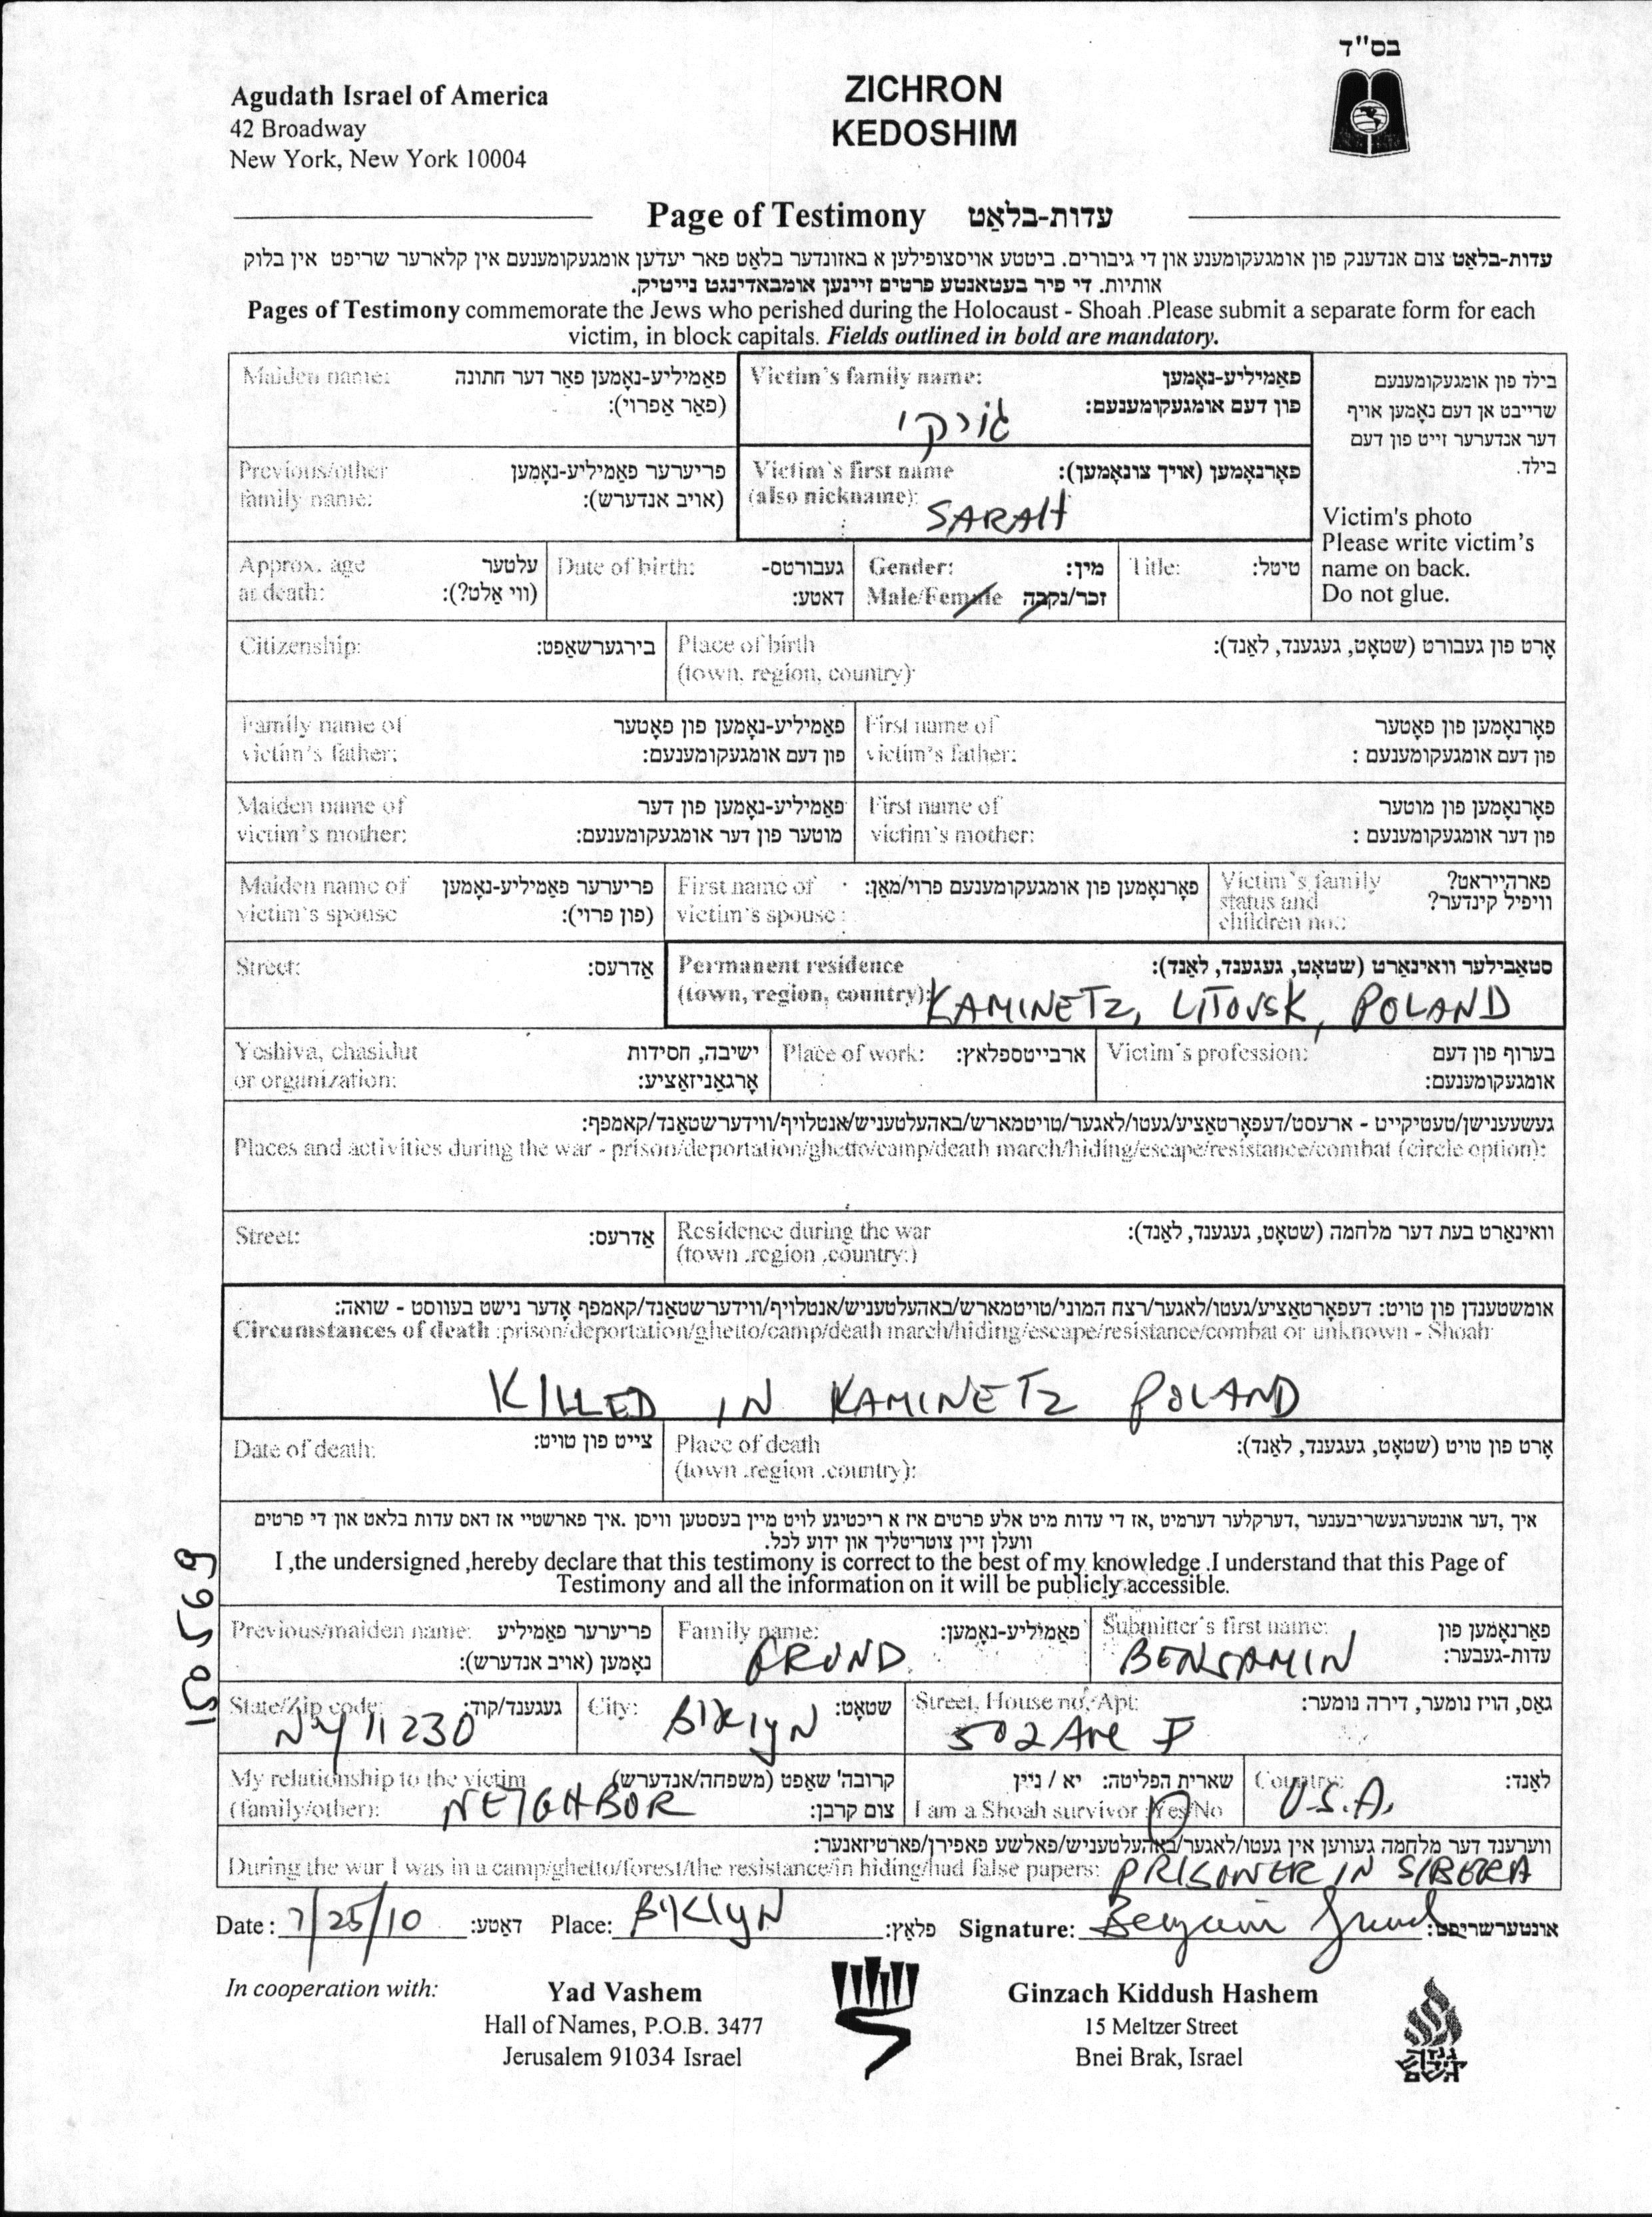 בס"ד
Agudath Israel of America
42 Broadway
New York, New York 10004
ZICHRON
KEDOSHIM
Page of Testimony עדות-בלאַט
עדות-בלאַט צום אנדענק פון אומגעקומענע און די גיבורים. ביטטע אויסצופילען א באזונדער בלאַט פאר יעדען אומגעקומענעם אין קלארער שריפט אין בלוק
אותיות. די פיר בעטאנטע פרטים זיינען אומבאדינגט נייטיק.
Pages of Testimony commemorate the Jews who perished during the Holocaust - Shoah .Please submit a separate form for each
victim, in block capitals. Fields outlined in bold are mandatory.
Maiden name: פאַמיליע-נאָמען פאַר דער חתונה
(פאַר אַפרוי):
Victim's family name: פאַמיליע-נאָמען
פון דעם אומגעקומענעם:
גורקי
בילד פון אומגעקומענעם
שרייבט אן דעם נאָמען אויף
דער אנדערער זייט פון דעם
בילד.
Victim's photo
Please write victim's
name on back.
Do not glue.
Previous/other פריערער פאַמיליע-נאָמען
family name: (אויב אנדערש):
Victim's first name פאָרנאָמען (אויך צונאָמען):
(also nickname):
SARAH
Approx. age עלטער
at death: (ווי אַלט?):
Date of birth: געבורטס-
דאטע:
Gender: מין:
Male/Female זכר/נקבה
Title: טיטל:
Citizenship: בירגערשאַפט:
Place of birth אָרט פון געבורט (שטאָט, געגענד, לאַנד):
(town, region, country)
Family name of פאַמיליע-נאָמען פון פאָטער
victim's father: פון דעם אומגעקומענעם:
First name of פאָרנאָמען פון פאָטער
victim's father: פון דעם אומגעקומענעם :
Maiden name of פאַמיליע-נאָמען פון דער
victim's mother: מוטער פון דער אומגעקומענעם:
First name of פאָרנאָמען פון מוטער
victim's mother: פון דער אומגעקומענעם :
Maiden name of פריערער פאַמיליע-נאָמען
victim's spouse (פון פרוי):
First name of פאָרנאָמען פון אומגעקומענעם פרוי/מאַן:
victim's spouse :
Victim's family פארהייראט?
status and וויפיל קינדער?
children no.:
Street: אַדרעס:
Permanent residence סטאַבילער וואינאַרט (שטאָט, געגענד, לאַנד):
(town, region, country): KAMINETZ, LITOVSK, POLAND
Yeshiva, chasidut ישיבה, חסידות
or organization: אָרגאַניזאַציע:
Place of work: ארבייטספלאץ:
Victim's profession: בערוף פון דעם
אומגעקומענעם:
געשעענישן/טעטיקייט - ארעסט/דעפּאָרטאַציע/געטו/לאגער/טויטמארש/באהעלטעניש/אנטלויף/ווידערשטאַנד/קאמפף:
Places and activities during the war - prison/deportation/ghetto/camp/death march/hiding/escape/resistance/combat (circle option):
Street: אַדרעס:
Residence during the war וואינאַרט בעת דער מלחמה (שטאָט, געגענד, לאַנד):
(town .region .country:)
אומשטענדן פון טויט: דעפּאָרטאַציע/געטו/לאגער/רצח המוני/טויטמארש/באהעלטעניש/אנטלויף/ווידערשטאַנד/קאמפף אָדער נישט בעווסט - שואה:
Circumstances of death :prison/deportation/ghetto/camp/death march/hiding/escape/resistance/combat or unknown - Shoah
KILLED IN KAMINETZ POLAND
Date of death: צייט פון טויט:
Place of death אָרט פון טויט (שטאָט, געגענד, לאַנד):
(town .region .country):
איך ,דער אונטערגעשריבענער ,דערקלער דערמיט ,אז די עדות מיט אלע פרטים איז א ריכטיגע לויט מיין בעסטען וויסן .איך פארשטיי אז דאס עדות בלאט און די פרטים
וועלן זיין צוטריטליך און ידוע לכל.
I ,the undersigned ,hereby declare that this testimony is correct to the best of my knowledge .I understand that this Page of
Testimony and all the information on it will be publicly accessible.
150569
Previous/maiden name: פריערער פאַמיליע
נאָמען (אויב אנדערש):
Family name: פאַמיליע-נאָמען:
GRUND
Submitter's first name: פאָרנאָמען פון
עדות-געבער:
BENJAMIN
State/Zip code: געגענד/קוד:
NY 11230
City: שטאָט:
BKLYN
Street, House no, Apt: גאַס, הויז נומער, דירה נומער:
502 Ave F
My relationship to the victim קרובה' שאַפט (משפחה/אנדערש)
(family/other): NEIGHBOR צום קרבן:
שארית הפליטה: יא / ניין
I am a Shoah survivor :Yes/No
Country: לאַנד:
U.S.A.
ווערענד דער מלחמה געווען אין געטו/לאגער/באהעלטעניש/פאלשע פאפירן/פארטיזאנער:
During the war I was in a camp/ghetto/forest/the resistance/in hiding/had false papers: PRISONER IN SIBERIA
Date : 7/25/10 דאַטע: Place: BKLYN פלאַץ: Signature: Benjamin Grund אונטערשריפט:
In cooperation with:
Yad Vashem
Hall of Names, P.O.B. 3477
Jerusalem 91034 Israel
Ginzach Kiddush Hashem
15 Meltzer Street
Bnei Brak, Israel
גנזך
קידוש
השם